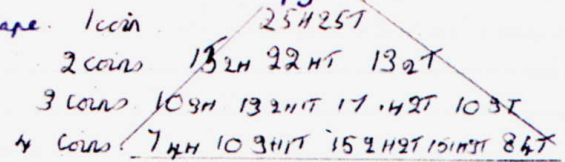 ape. 1 coin 25H 25T
2 coins 15 2H 22 HT 13 2T
3 coins 10 3H 13 2H1T 17 1H2T 10 3T
4 coins 7 4H 10 3H1T 15 2H2T 15 1H3T 8 4T